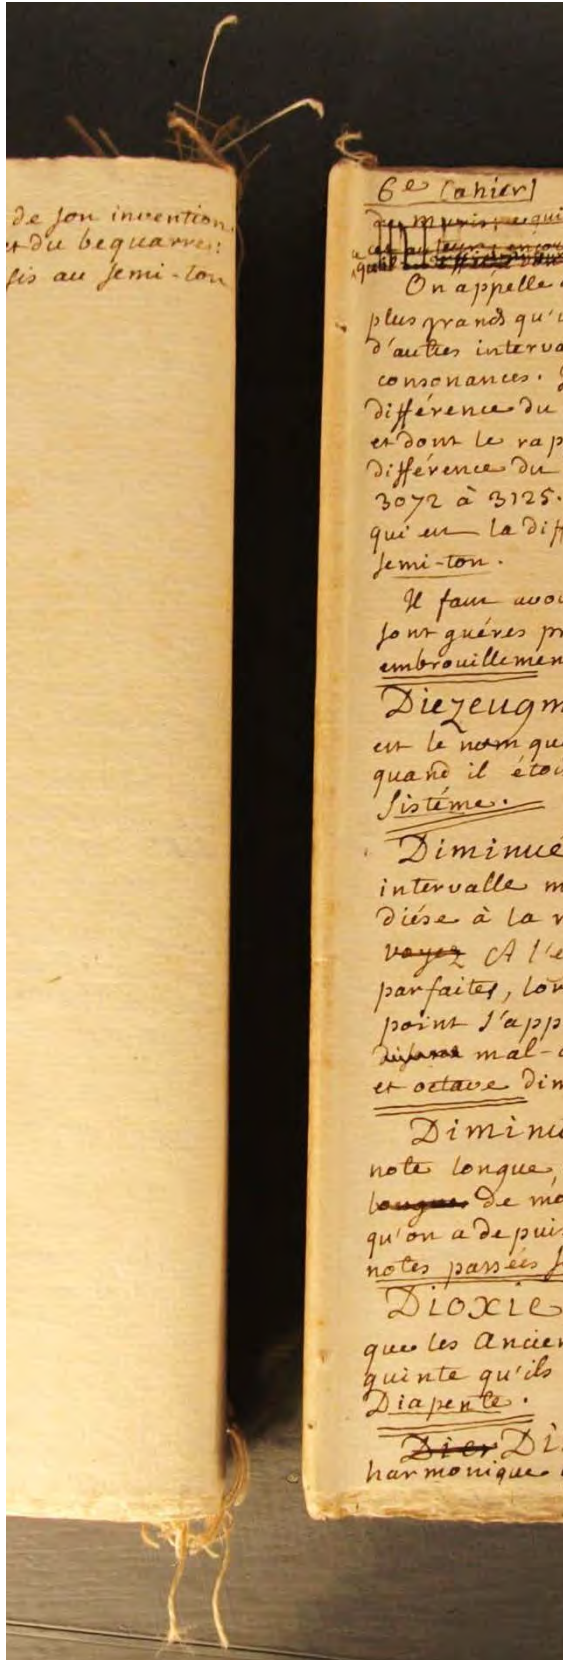 de son invention
et du bequarre:
sis au semi-ton
6e Cahier
qui
On appelle
plus grands qu'
d'autres interva
consonances.
différence du
et dont le rap
différence du
3072 à 3125.
qui est la dif
semi-ton.
Il faut avou
sont guéres pr
embrouillemen
Diezeugm
est le nom que
quand il étoi
Sistéme.
Diminué
intervalle m
diése à la
voyez A l'e
parfaites, lor
point s'app
mal-
et octave dim
Diminu
note longue,
longues de
qu'on a depuis
notes passées
Dioxie
que les Ancien
quinte qu'ils
Diapente.
Dier Di
harmonique